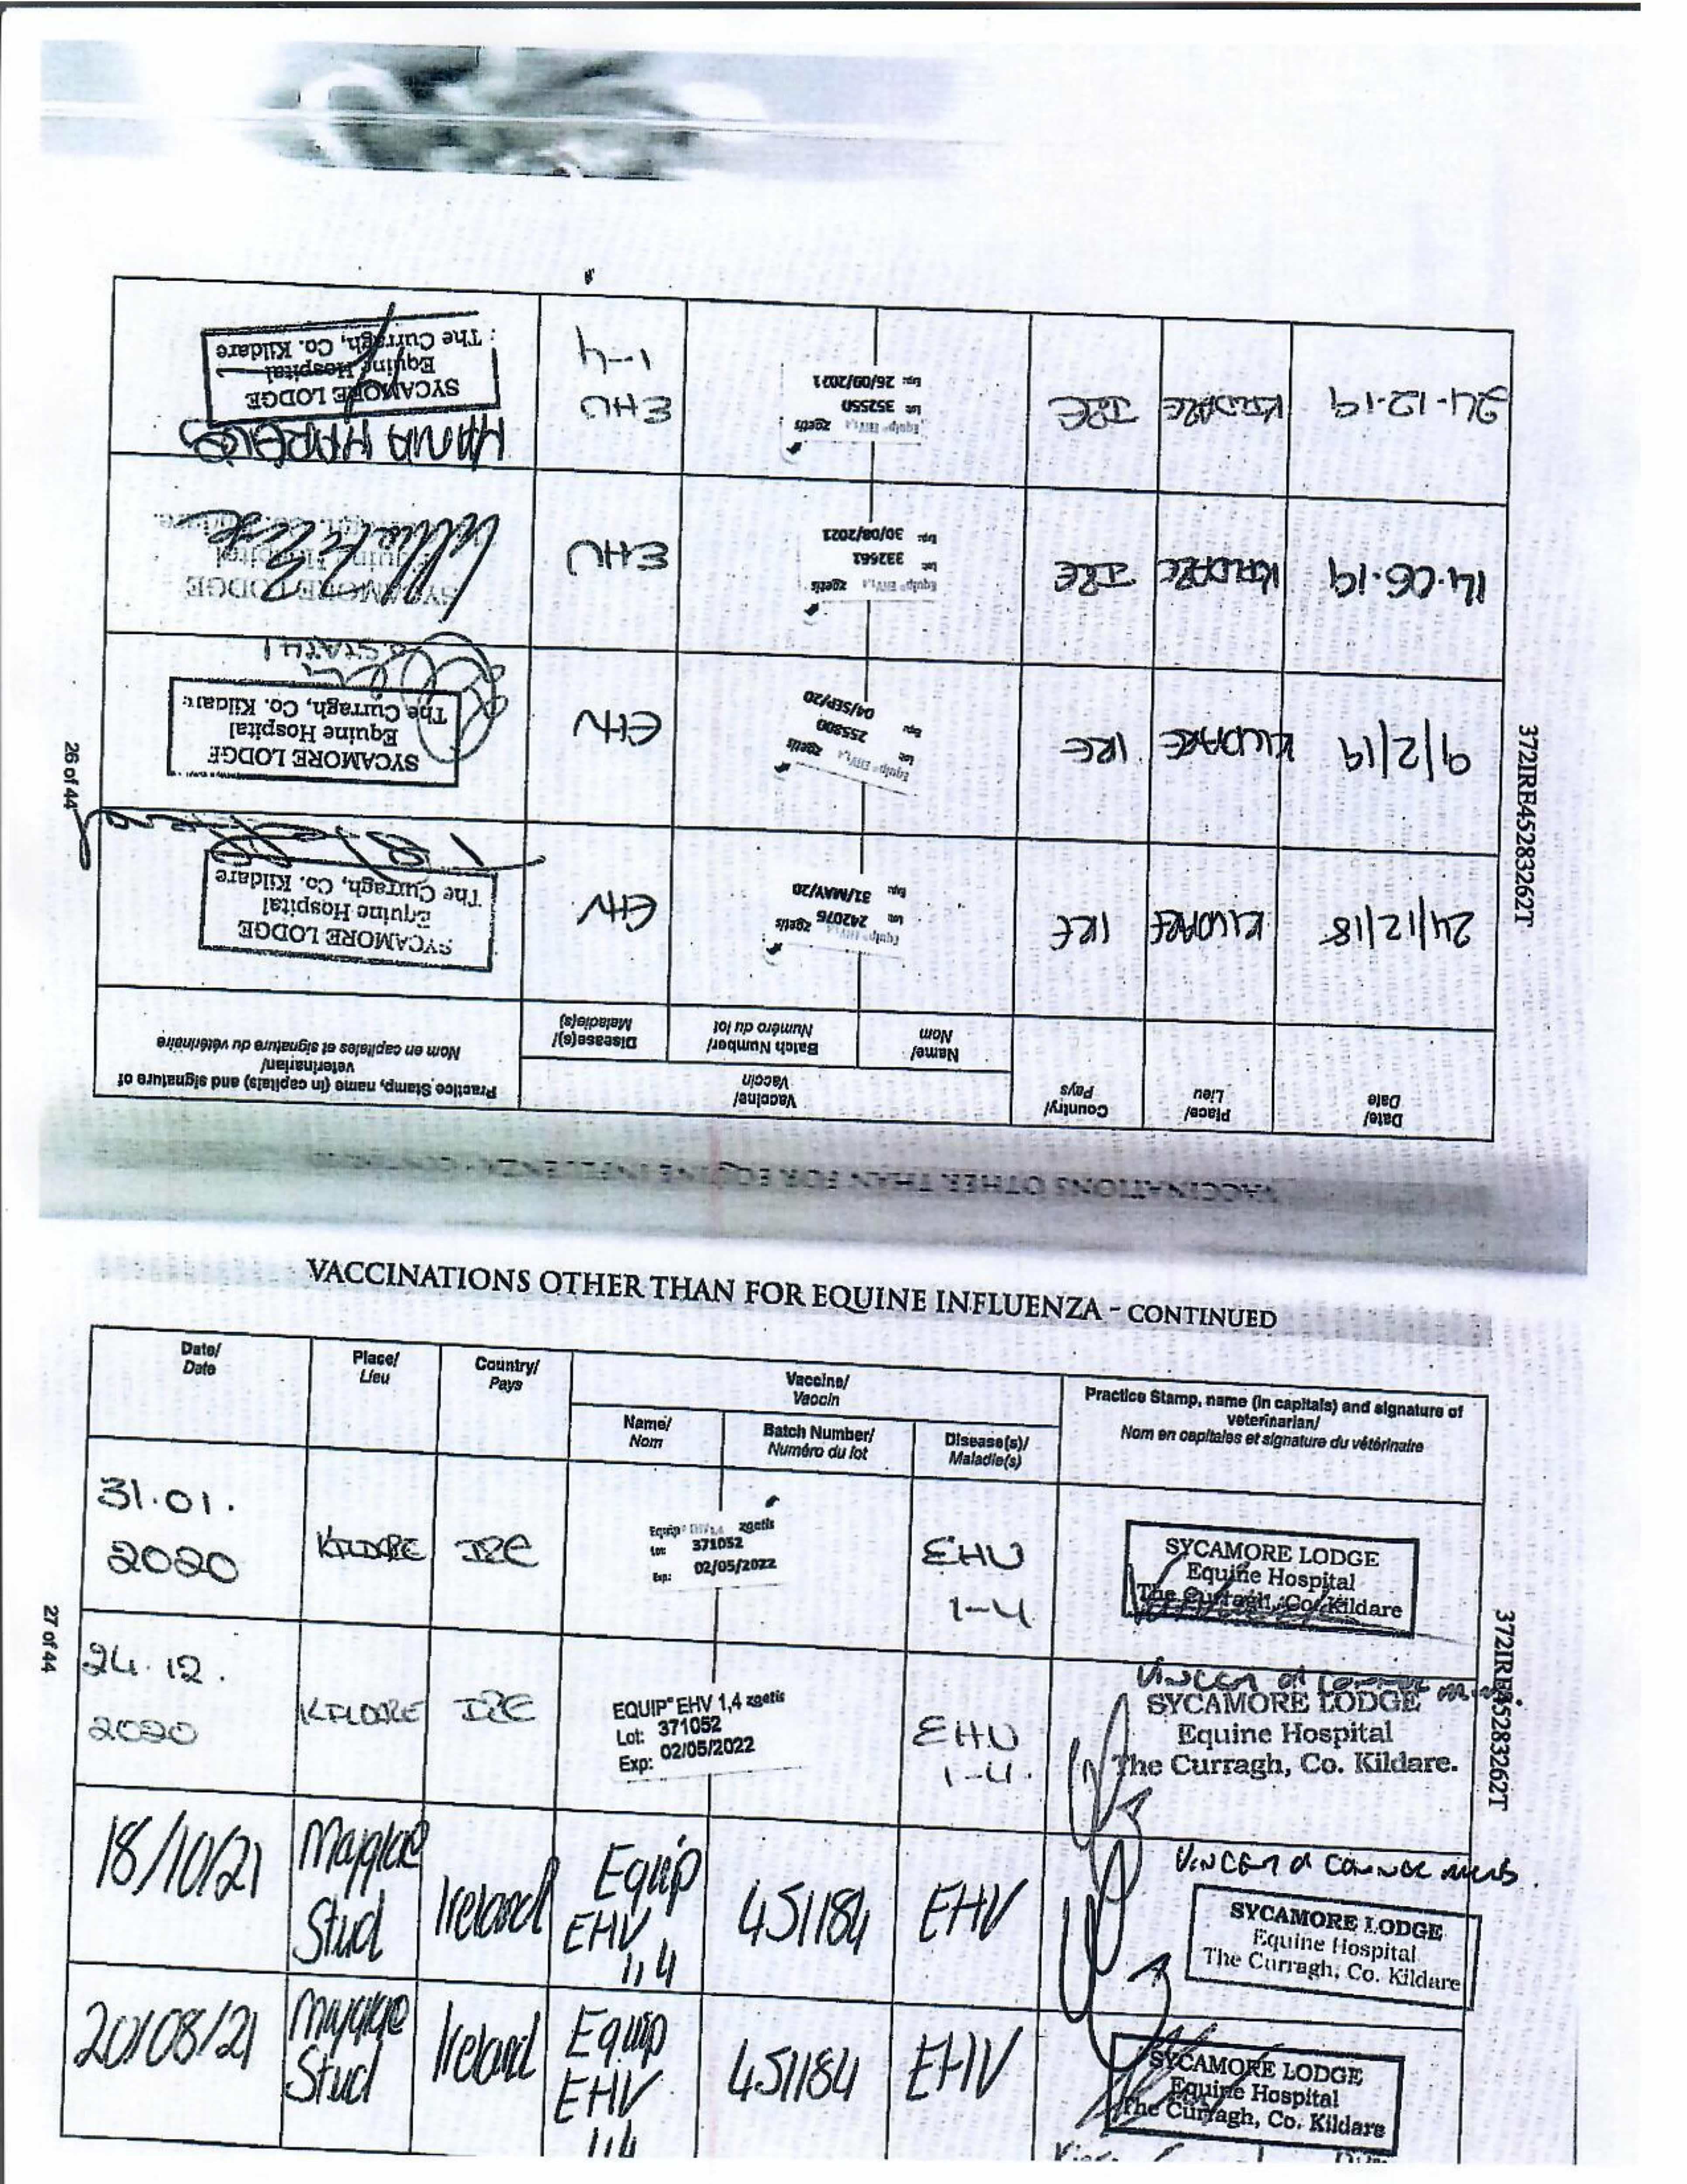 VACCINATIONS OTHER THAN FOR EQUINE INFLUENZA - CONTINUED
Date/
Date
Place/
Lieu
Country/
Pays
Vaccine/
Vaccin
Name/
Nom
Batch Number/
Numéro du lot
Disease(s)/
Maladie(s)
Practice Stamp, name (in capitals) and signature of
veterinarian/
Nom en capitales et signature du vétérinaire
24/12/18
KILDARE
IRE
Equip EHV1,4 zoetis
Lot: 242076
Exp: 31/MAY/20
EHV
SYCAMORE LODGE
Equine Hospital
The Curragh, Co. Kildare
9/2/19
KILDARE
IRE
Equip EHV1,4 zoetis
Lot: 255800
Exp: 04/SEP/20
EHV
SYCAMORE LODGE
Equine Hospital
The Curragh, Co. Kildare
14.06.19
KILDARE
IRE
Equip EHV1,4 zoetis
Lot: 332561
Exp: 30/08/2021
EHV
SYCAMORE LODGE
Equine Hospital
24.12.19
KILDARE
IRE
Equip EHV1,4 zoetis
Lot: 352550
Exp: 26/09/2021
EHV
1-4
SYCAMORE LODGE
Equine Hospital
The Curragh, Co. Kildare
26 of 44
372IRE45283262T
VACCINATIONS OTHER THAN FOR EQUINE INFLUENZA - CONTINUED
Date/
Date
Place/
Lieu
Country/
Pays
Vaccine/
Vaccin
Name/
Nom
Batch Number/
Numéro du lot
Disease(s)/
Maladie(s)
Practice Stamp, name (in capitals) and signature of
veterinarian/
Nom en capitales et signature du vétérinaire
31.01.
2020
KILDARE
IRE
Equip EHV1,4 zoetis
Lot: 371052
Exp: 02/05/2022
EHV
1-4
SYCAMORE LODGE
Equine Hospital
The Curragh, Co. Kildare
24.12.
2020
KILDARE
IRE
EQUIP® EHV 1,4 zoetis
Lot: 371052
Exp: 02/05/2022
EHV
1-4.
SYCAMORE LODGE
Equine Hospital
The Curragh, Co. Kildare.
18/10/21
Stud
Ireland
Equip
EHV
1,4
451184
EHV
SYCAMORE LODGE
Equine Hospital
The Curragh, Co. Kildare
20/08/21
Stud
Ireland
Equip
EHV
1,4
451184
EHV
SYCAMORE LODGE
Equine Hospital
The Curragh, Co. Kildare
27 of 44
372IRE45283262T